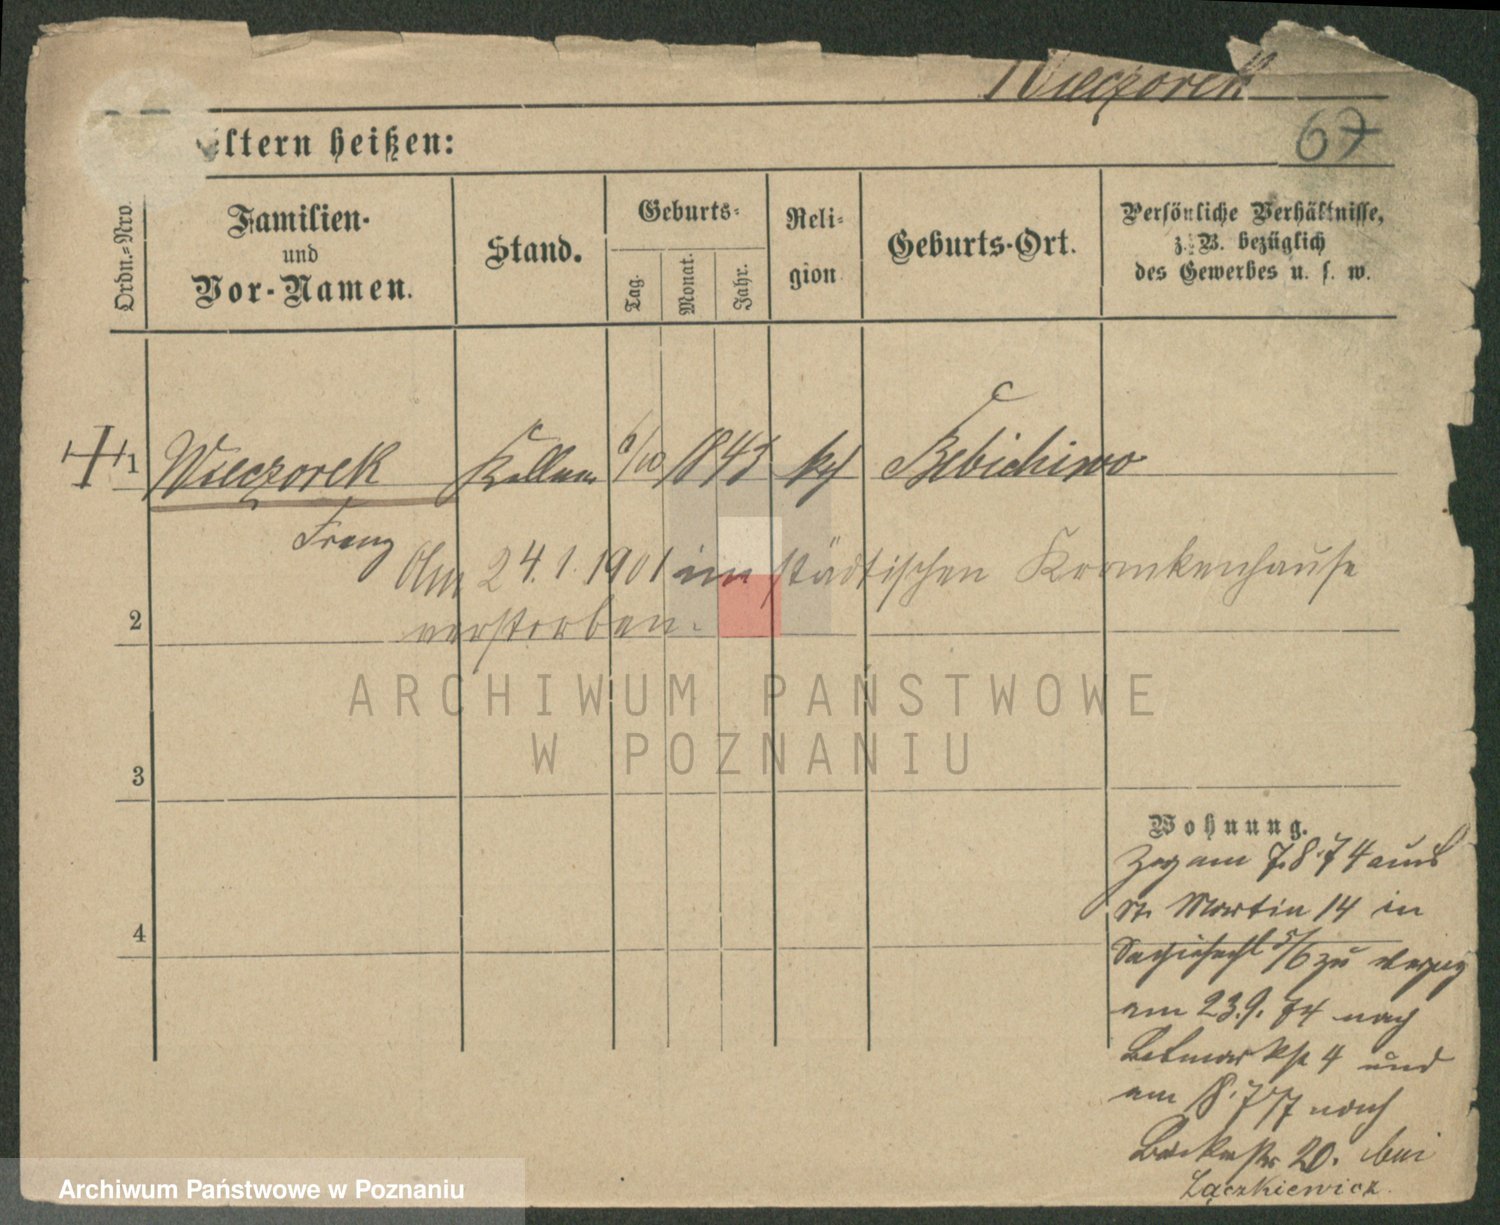 Wieczorek
67
eltern heißen:
Ordn.-Nro.
Familien-
und
Vor-Namen.
Stand.
Geburts-
Tag.
Monat.
Jahr.
Reli-
gion
Geburts-Ort.
Persönliche Verhältnisse,
z. B. bezüglich
des Gewerbes u. s. w.
1 Wieczorek Kellner 6/10 1843 kf
Franz
Am 24.1.1901 im städtischen Krankenhause
2 verstorben.
ARCHIWUM PAŃSTWOWE
W POZNANIU
3
Wohnung.
Zog am 7.8.74 aus
St. Martin 14 in
4
5/6 zu verzog
am 23.9.74 nach
4 und
am 18.7 77 nach
20. bei
Łączkiewicz.
Archiwum Państwowe w Poznaniu